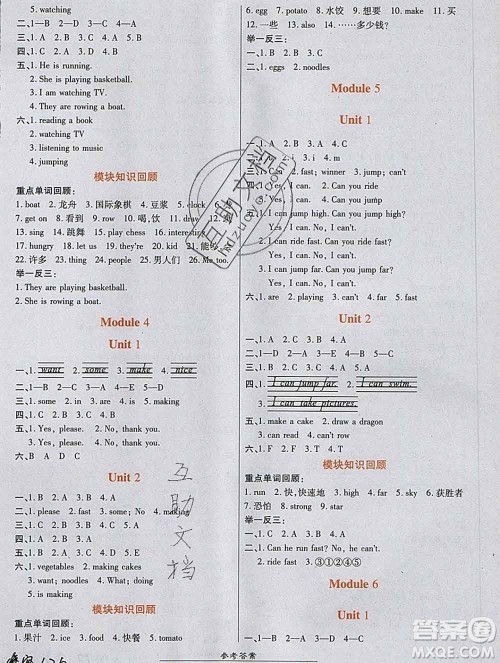 5. watching
二、1—B 2—D 3—A 4—C
三、1. A 2. C 3. B 4. D 5. A
四、1. A 2. B 3. D 4. C
五、1. He is running.
2. She is playing basketball.
3. I am watching TV.
4. They are rowing a boat.
六、1. reading a book
2. watching TV
3. listening to music
4. jumping
模块知识回顾
重点单词回顾：
1. boat 2. 龙舟 3. 国际象棋 4. 豆浆 5. clock 6.
7. get on 8. 看到 9. row 10. 喝,饮 11. draw
13. sing 14. 跳舞 15. play chess 16. interesting
17. hungry 18. let us 19. they are 20. kid 21. 能够
22. 许多 23. thing 24. people 25. 男人们 26. Me too.
举一反三：
1. They are playing basketball.
2. She is rowing a boat.
Module 4
Unit 1
一、1. want 2. some 3. make 4. nice
二、1—B 2—C 3—A 4—E 5—D
三、1. some 2. in 3. are 4. is 5. making
四、1. C 2. D 3. A 4. B
五、1. Yes, please. 2. No, thank you.
3. Yes, please. 4. No, thank you.
Unit 2
一、1. B 2. B 3. A 4. A
二、1. please 2. fast 3. some 4. No 5. making
三、1—D 2—C 3—B 4—A
四、1. A 2. B 3. B 4. A 5. A
五、1. vegetables 2. making cakes
3. want; noodles 4. What; doing
5. is making
模块知识回顾
重点单词回顾：
1. 果汁 2. ice 3. food 4. 快餐 5. tomato
6. eggs 7. potato 8. 水饺 9. 想要 10. make 11. 买
12. 一些 13. also 14. ……多少钱?
举一反三：
一、1. B 2. A 3. A 4. B 5. C
二、1. eggs 2. noodles
Module 5
Unit 1
一、1. A 2. C 3. A 4. A
二、1. a 2. i 3. i 4. m
三、1. can't 2. fast; winner 3. jump; can't
四、1. Yes, I can. 2. Can you ride
3. Yes, I can. 4. Can you jump
五、1. Can you jump high? Can you jump high?
Yes, I can. No, I can't.
2. Can you ride fast? Can you ride fast?
Yes, I can. No, I can't.
3. Can you jump far? Can you jump far?
Yes, I can. No, I can't.
六、1. are 2. playing 3. can't 4. can't
Unit 2
一、1. B 2. A 3. A 4. A
二、1—D 2—A 3—E 4—C 5—B
三、1. B 2. C 3. B 4. A 5. B
四、1. I can jump far. 2. I can swim.
3. I can take pictures.
五、1. make a cake 2. draw a dragon
3. can read 4. can't row
六、1. B 2. B 3. A 4. B 5. A
模块知识回顾
重点单词回顾：
1. run 2. 快,快速地 3. high 4. far 5. ride 6. 获胜者
7. 恐怕 8. strong 9. star
举一反三：
一、1. Can he run fast? No, he can't.
2. ride fast 3. ①③①②
Module 6
Unit 1
一、1. B 2. A 3. B 4. A 5. B
参考答案
互助文档
互助文档
作业帮